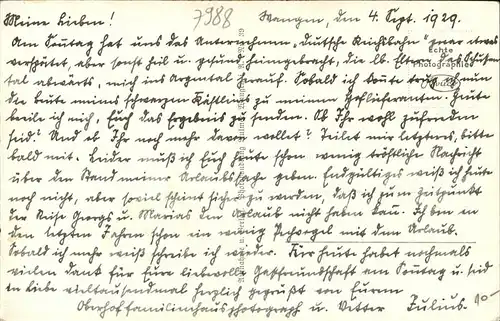 7988
Meine Lieben! Wangen, den 4. Sept. 1929.
Am Sonntag hat uns das Unternehmen „Deutsche Reichsbahn" zwar etwas
verspätet, aber sonst heil u. gesund heimgebracht, die lb. Eltern das
tal abwärts, mich ins Argental herauf. Sobald ich konnte trug ich nun
die Beute meines schwarzen Kästleins zu meinem Heute
beeile ich mich, Euch das Ergebnis zu senden. Ob Ihr wohl zufrieden
seid? Und ob Ihr noch mehr davon wollet? Teilet mir letzteres, bitte
bald mit. Leider muß ich Euch heute schon wenig tröstliche Nachricht
über den Stand meiner Urlaubssache geben. Endgültiges weiß ich heute
noch nicht, aber soviel scheint sicher zu werden, daß ich zum Zeitpunkt
der Reise Georgs u. Marias den Urlaub nicht haben kann. Ich bin in
den letzten Jahren schon ein wenig Pechvogel mit dem Urlaub.
Sobald ich mehr weiß schreibe ich wieder. Für heute habet nochmals
vielen Dank für Eure liebevolle Gastfreundschaft am Sonntag u. seid
in Liebe vieltausendmal herzlich gegrüßt von Eurem
Oberhoffamilienhausphotograph u. Vetter Julius.
Echte
Photographie